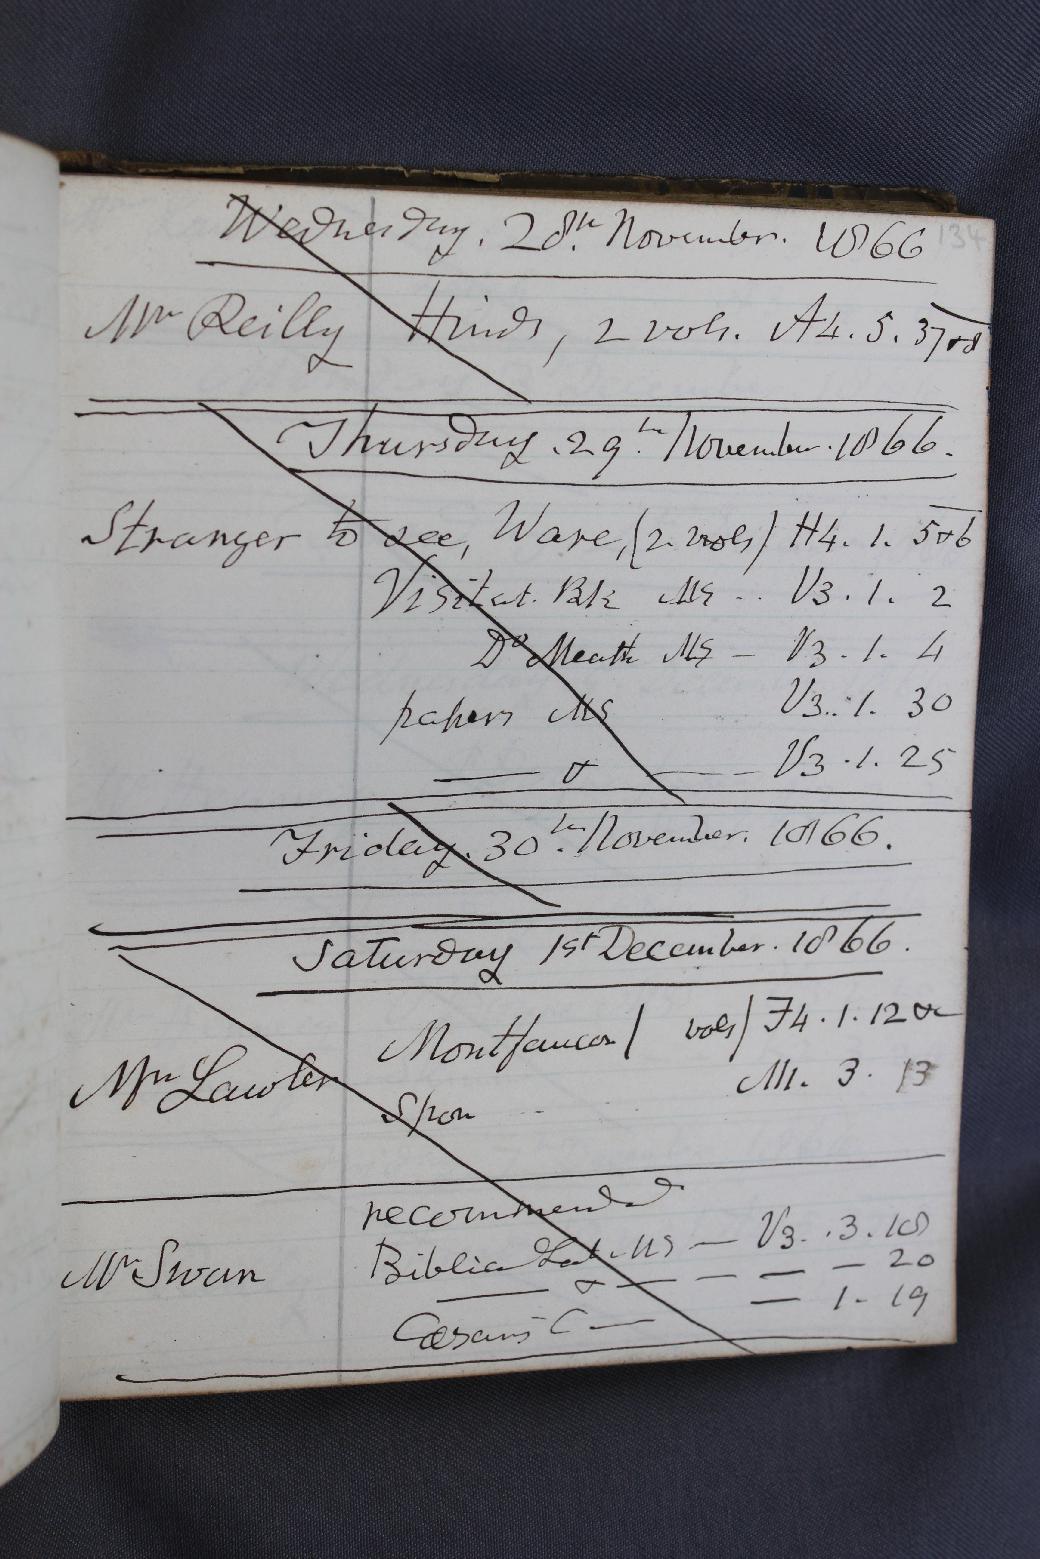 Wednesday. 28th. November. 1866 134
Mr Reilly Hinds, 2 vols. A4. 5. 37&8
Thursday. 29th. November. 1866.
Stranger to see, Ware, (2 vols) H4. 1. 5&6
Visitat. Bk MS .. V3. 1. 2
Do Meath MS — V3. 1. 4
papers MS V3. 1. 30
—— & —— V3. 1. 25
Friday. 30th. November. 1866.
Saturday 1st December. 1866.
Montfaucon ( vols) F4. 1. 12 &c
Mr Lawler M1. 3. 13
Spon
recommended
Mr Swan Biblia Lat. MS — V3. 3. 18
—— & — — — — 20
Cæsaris C — — 1. 19